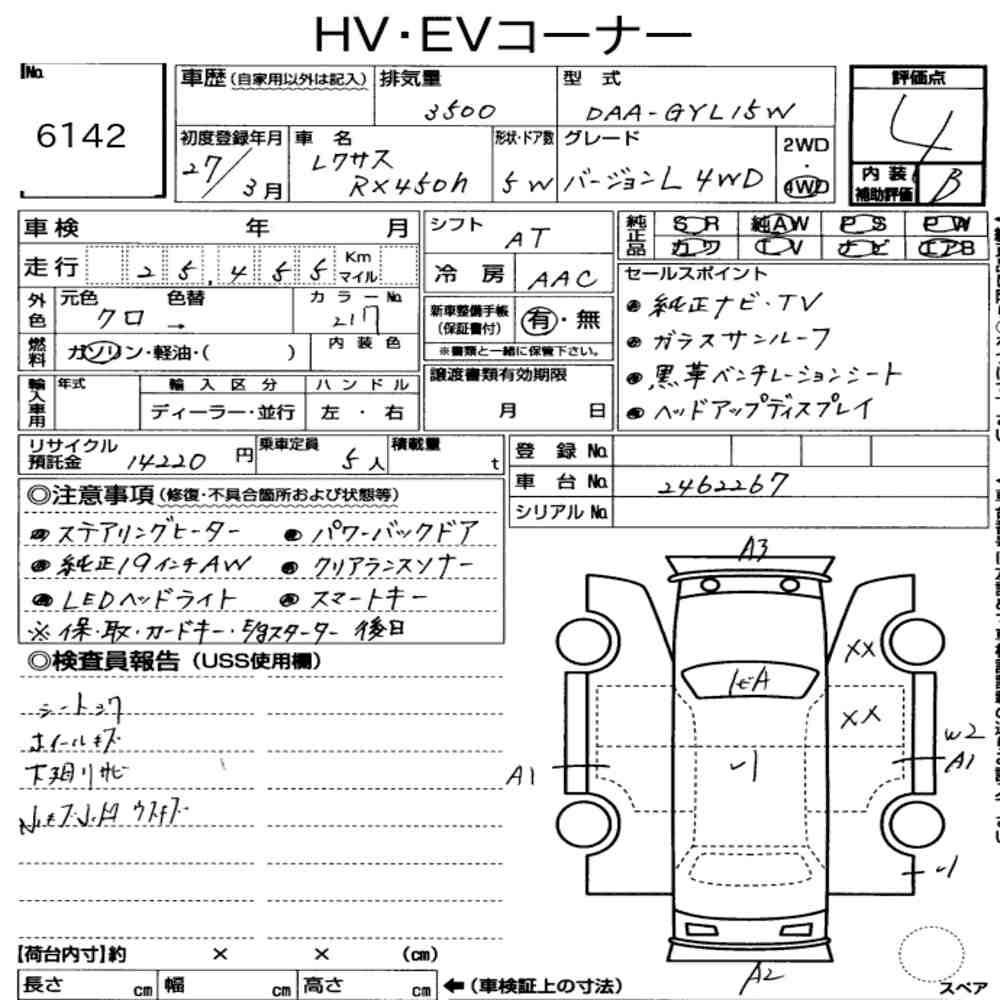 HV・EVコーナー
No.
6142
車歴(自家用以外は記入)
排気量
3500
型式
DAA-GYL15W
評価点
4
初度登録年月
27/3月
車名
レクサス
RX450h
形状・ドア数
5W
グレード
バージョンL 4WD
2WD
・
4WD
内装
補助評価
B
車検 年 月
走行 25,455 Km マイル
シフト
AT
純正品
SR 純AW PS PW
カワ TV ナビ エアB
冷房
AAC
セールスポイント
● 純正ナビ・TV
● ガラスサンルーフ
● 黒革ベンチレーションシート
● ヘッドアップディスプレイ
外色
元色 色替
クロ →
カラーNo.
217
新車整備手帳
(保証書付)
有・無
※書類と一緒に保管下さい。
燃料
ガソリン・軽油・( )
内装色
輸入車用
年式
輸入区分
ディーラー・並行
ハンドル
左・右
譲渡書類有効期限
月 日
リサイクル
預託金 14220円
乗車定員
5人
積載量
t
登録No.
車台No. 2462267
シリアルNo.
◎注意事項(修復・不具合箇所および状態等)
● ステアリングヒーター ● パワーバックドア
● 純正19インチAW ● クリアランスソナー
● LEDヘッドライト ● スマートキー
※ 保・取・カードキー・E/gスターター 後日
◎検査員報告(USS使用欄)
シートコゲ
ホイールキズ
下廻りサビ
A3
XX
XX
W2
A1
A1
A2
スペア
【荷台内寸】約 × × (cm)
長さ cm 幅 cm 高さ cm ←(車検証上の寸法)